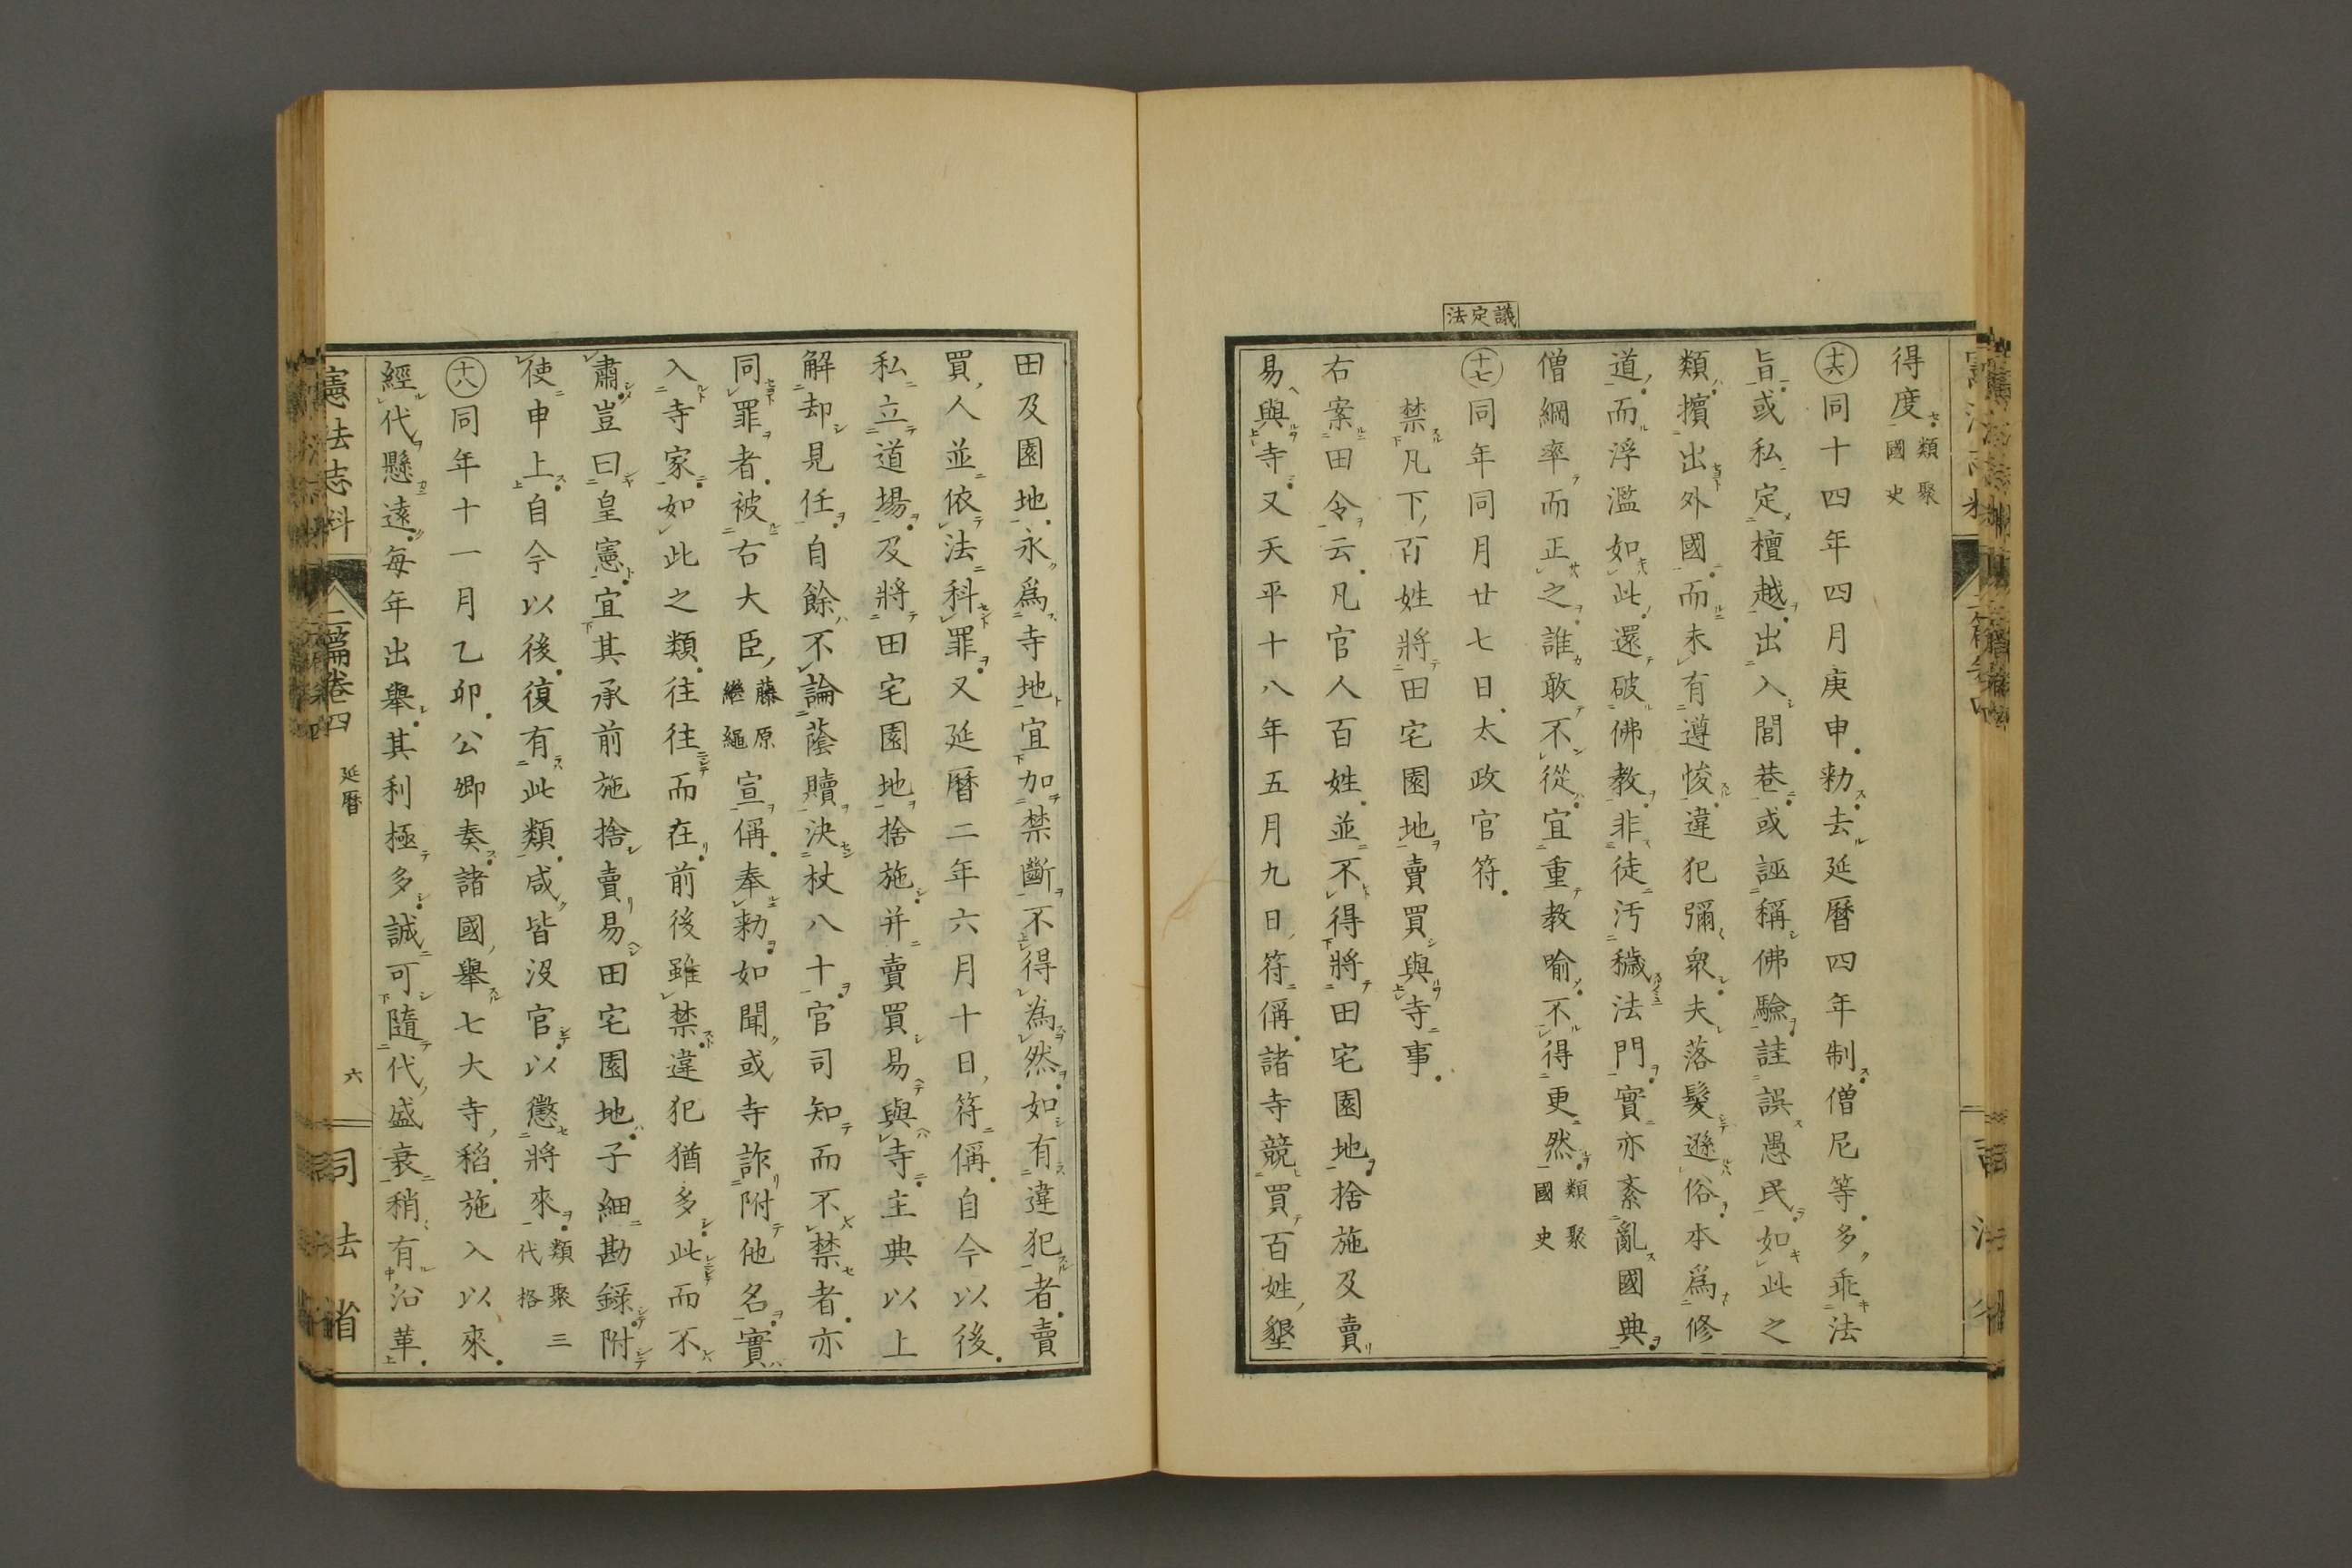 議定法
得度類聚國史
十六同十四年四月庚申勅去延曆四年制僧尼等多乖法
旨或私定檀越出入閭巷或誣稱佛驗詿誤愚民如此之
類擯出外國而未有遵悛違犯彌衆夫落髮遜俗本爲修
道而浮濫如此還破佛教非徒汚穢法門實亦紊亂國典
僧綱率而正之誰敢不從宜重教喻不得更然類聚國史
十七同年同月廿七日太政官符
禁凡下百姓將田宅園地賣買與寺事
右案田令云凡官人百姓並不得將田宅園地捨施及賣
易與寺又天平十八年五月九日符偁諸寺競買百姓墾
田及園地永爲寺地宜加禁斷不得為然如有違犯者賣
買人並依法科罪又延曆二年六月十日符偁自今以後
私立道場及將田宅園地捨施并賣買易與寺主典以上
解却見任自餘不論蔭贖決杖八十官司知而不禁者亦
同罪者被右大臣藤原繼繩宣偁奉勅如聞或寺詐附他名實
入寺家如此之類往往而在前後雖禁違犯猶多此而不
肅豈曰皇憲宜其承前施捨賣易田宅園地子細勘錄附
使申上自今以後復有此類咸皆沒官以懲將來類聚三代格
十八同年十一月乙卯公卿奏諸國舉七大寺稻施入以來
經代懸遠每年出舉其利極多誠可隨代盛衰稍有沿革
憲法志料 二篇卷四 延曆 六 司法省